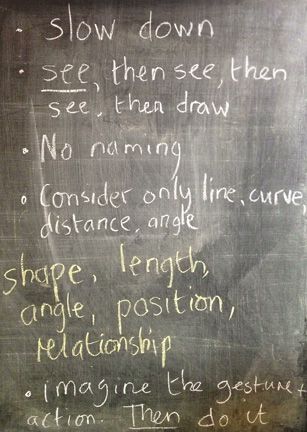 • slow down
• see, then see, then
see, then draw
• No naming
• Consider only line, curve,
distance, angle
shape, length,
angle, position,
relationship
• imagine the gesture +
action. Then do it